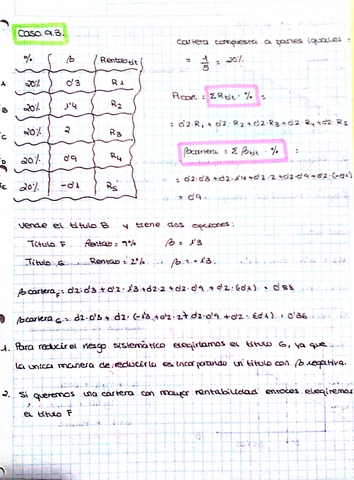 Caso 9.3.
Cartera compuesta a partes iguales:
= 1/5 = 20%
% β Rentab tit
A 20% 0'3 R1
B 20% 1'4 R2
C 20% 2 R3
D 20% 0'9 R4
E 20% -0'1 R5
Rcar. = ΣRtit · % =
= 0'2·R1 + 0'2·R2 + 0'2·R3 + 0'2·R4 + 0'2·R5
βcartera = Σβtit · % =
= 0'2·0'3 + 0'2·1'4 + 0'2·2 + 0'2·0'9 + 0'2·(-0'1)
= 0'9.
Vende el título B y tiene dos opciones:
Título F Rentab = 9% β = 1'3
Título G Rentab = 2% β = -1'3.
βcartera F = 0'2·0'3 + 0'2·1'3 + 0'2·2 + 0'2·0'9 + 0'2·(-0'1) = 0'88
βcartera G = 0'2·0'3 + 0'2·(-1'3 + 0'2·2 + 0'2·0'9 + 0'2·(-0'1) = 0'36
1. Para reducir el riesgo sistemático elegiríamos el título G, ya que
la única manera de reducirlo es incorporando un título con β negativa.
2. Si queremos una cartera con mayor rentabilidad entoces elegiremos
el título F